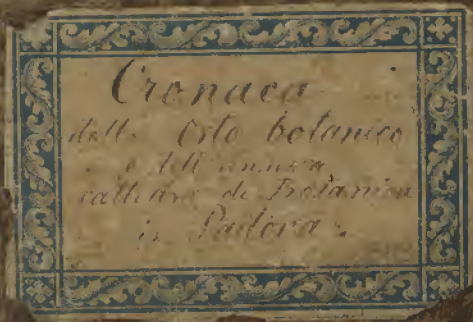 Cronaca
dell' Orto botanico
e dell' annessa
cattedra di Botanica
in Padova.